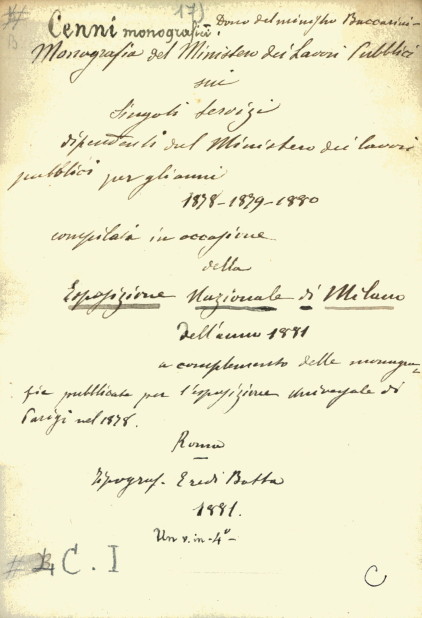 17)
Cenni monografici. Dono del ministro Baccarini -
Monografia del Ministero dei Lavori Pubblici
sui
singoli servizi
dipendenti dal Ministero dei lavori
pubblici per gli anni
1878-1879-1880
compilata in occasione
della
Esposizione Nazionale di Milano
dell'anno 1881
a complemento delle monogra-
fie pubblicate per l'Esposizione Universale di
Parigi nel 1878.
Roma
Tipograf. Eredi Botta
1881.
Un v. in-4º-
C. I
C